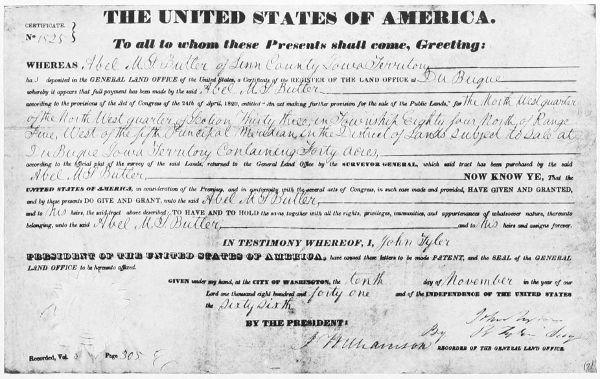 THE UNITED STATES OF AMERICA.
CERTIFICATE.
No 1525
To all to whom these Presents shall come, Greeting:
WHEREAS Abel M. Butler of Linn County Iowa Territory
ha deposited in the GENERAL LAND OFFICE of the United States, a Certificate of the REGISTER OF THE LAND OFFICE at Du Buque
whereby it appears that full payment has been made by the said Abel M. Butler
according to the provisions of the Act of Congress of the 24th of April, 1820, entitled "An act making further provision for the sale of the Public Lands," for the North West quarter
of the North West quarter of Section Thirty three, in Township Eighty four North, of Range
Five, West of the fifth Principal Meridian, in the District of Lands subject to sale at
Du Buque Iowa Territory Containing Forty acres,
according to the official plat of the survey of the said Lands, returned to the General Land Office by the SURVEYOR GENERAL, which said tract has been purchased by the said
Abel M. Butler NOW KNOW YE, That the
UNITED STATES OF AMERICA, in consideration of the Premises, and in conformity with the several acts of Congress, in such case made and provided, HAVE GIVEN AND GRANTED,
and by these presents DO GIVE AND GRANT, unto the said Abel M. Butler,
and to his heirs, the said tract above described; TO HAVE AND TO HOLD the same, together with all the rights, privileges, immunities, and appurtenances of whatsoever nature, thereunto
belonging, unto the said Abel M. Butler, and to his heirs and assigns forever.
IN TESTIMONY WHEREOF, I, John Tyler
PRESIDENT OF THE UNITED STATES OF AMERICA, have caused these letters to be made PATENT, and the SEAL of the GENERAL
LAND OFFICE to be hereunto affixed.
GIVEN under my hand, at the CITY OF WASHINGTON, the tenth day of November in the year of our
Lord one thousand eight hundred and forty one and of the INDEPENDENCE OF THE UNITED STATES
the sixty sixth
BY THE PRESIDENT: John Tyler
By R Tyler Secy
J Williamson RECORDER OF THE GENERAL LAND OFFICE.
Recorded, Vol. Page 305